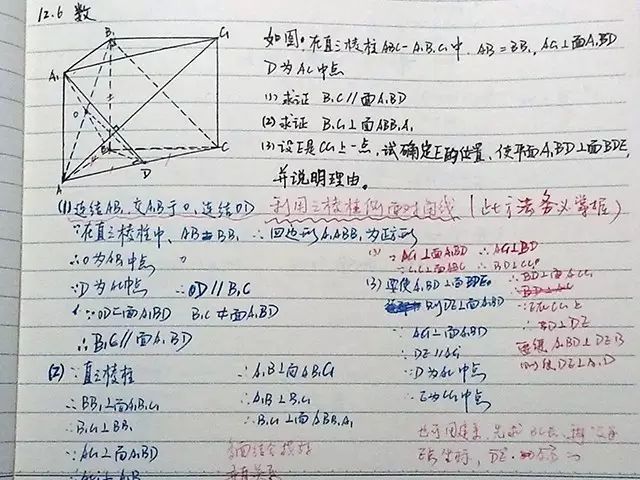 12.6 数
B₁
C₁
A₁
O
B
A
D
C
如图。在直三棱柱ABC-A₁B₁C₁中, AB=BB₁, AC₁⊥面A₁BD
D为AC中点
(1) 求证 B₁C∥面A₁BD
(2) 求证 B₁C₁⊥面ABB₁A₁
(3) 设E是CC₁上一点, 试确定E的位置、使平面A₁BD⊥面BDE,
并说明理由。
(1) 连结AB₁ 交A₁B于O, 连结OD 利用三棱柱侧面对角线 (此方法务必掌握)
∵在直三棱柱中、AB=BB₁ ∴四边形A₁ABB₁为正方形
∴O为AB₁中点
∵D为AC中点 ∴OD∥B₁C
∵OD⊂面A₁BD B₁C⊄面A₁BD
∴B₁C∥面A₁BD
(2) ∵直三棱柱
∴BB₁⊥面A₁B₁C₁
∴B₁C₁⊥BB₁
∵AC₁⊥面A₁BD
∴AC₁⊥A₁B
∴A₁B⊥面AB₁C₁
∴A₁B⊥B₁C₁
∴B₁C₁⊥面ABB₁A₁
(3) ∵AC₁⊥面A₁BD ∴AC₁⊥BD
∵CC₁⊥面ABC ∴BD⊥CC₁
∴BD⊥面ACC₁
(3) 要使A₁BD⊥面BDE
则DE⊥面A₁BD
∵AC₁⊥面A₁BD
∴DE∥AC₁
∵D为AC中点
∴E为CC₁中点
∵E在CC₁上
∴BD⊥DE
要使A₁BD⊥DEB
则使DE⊥A₁D